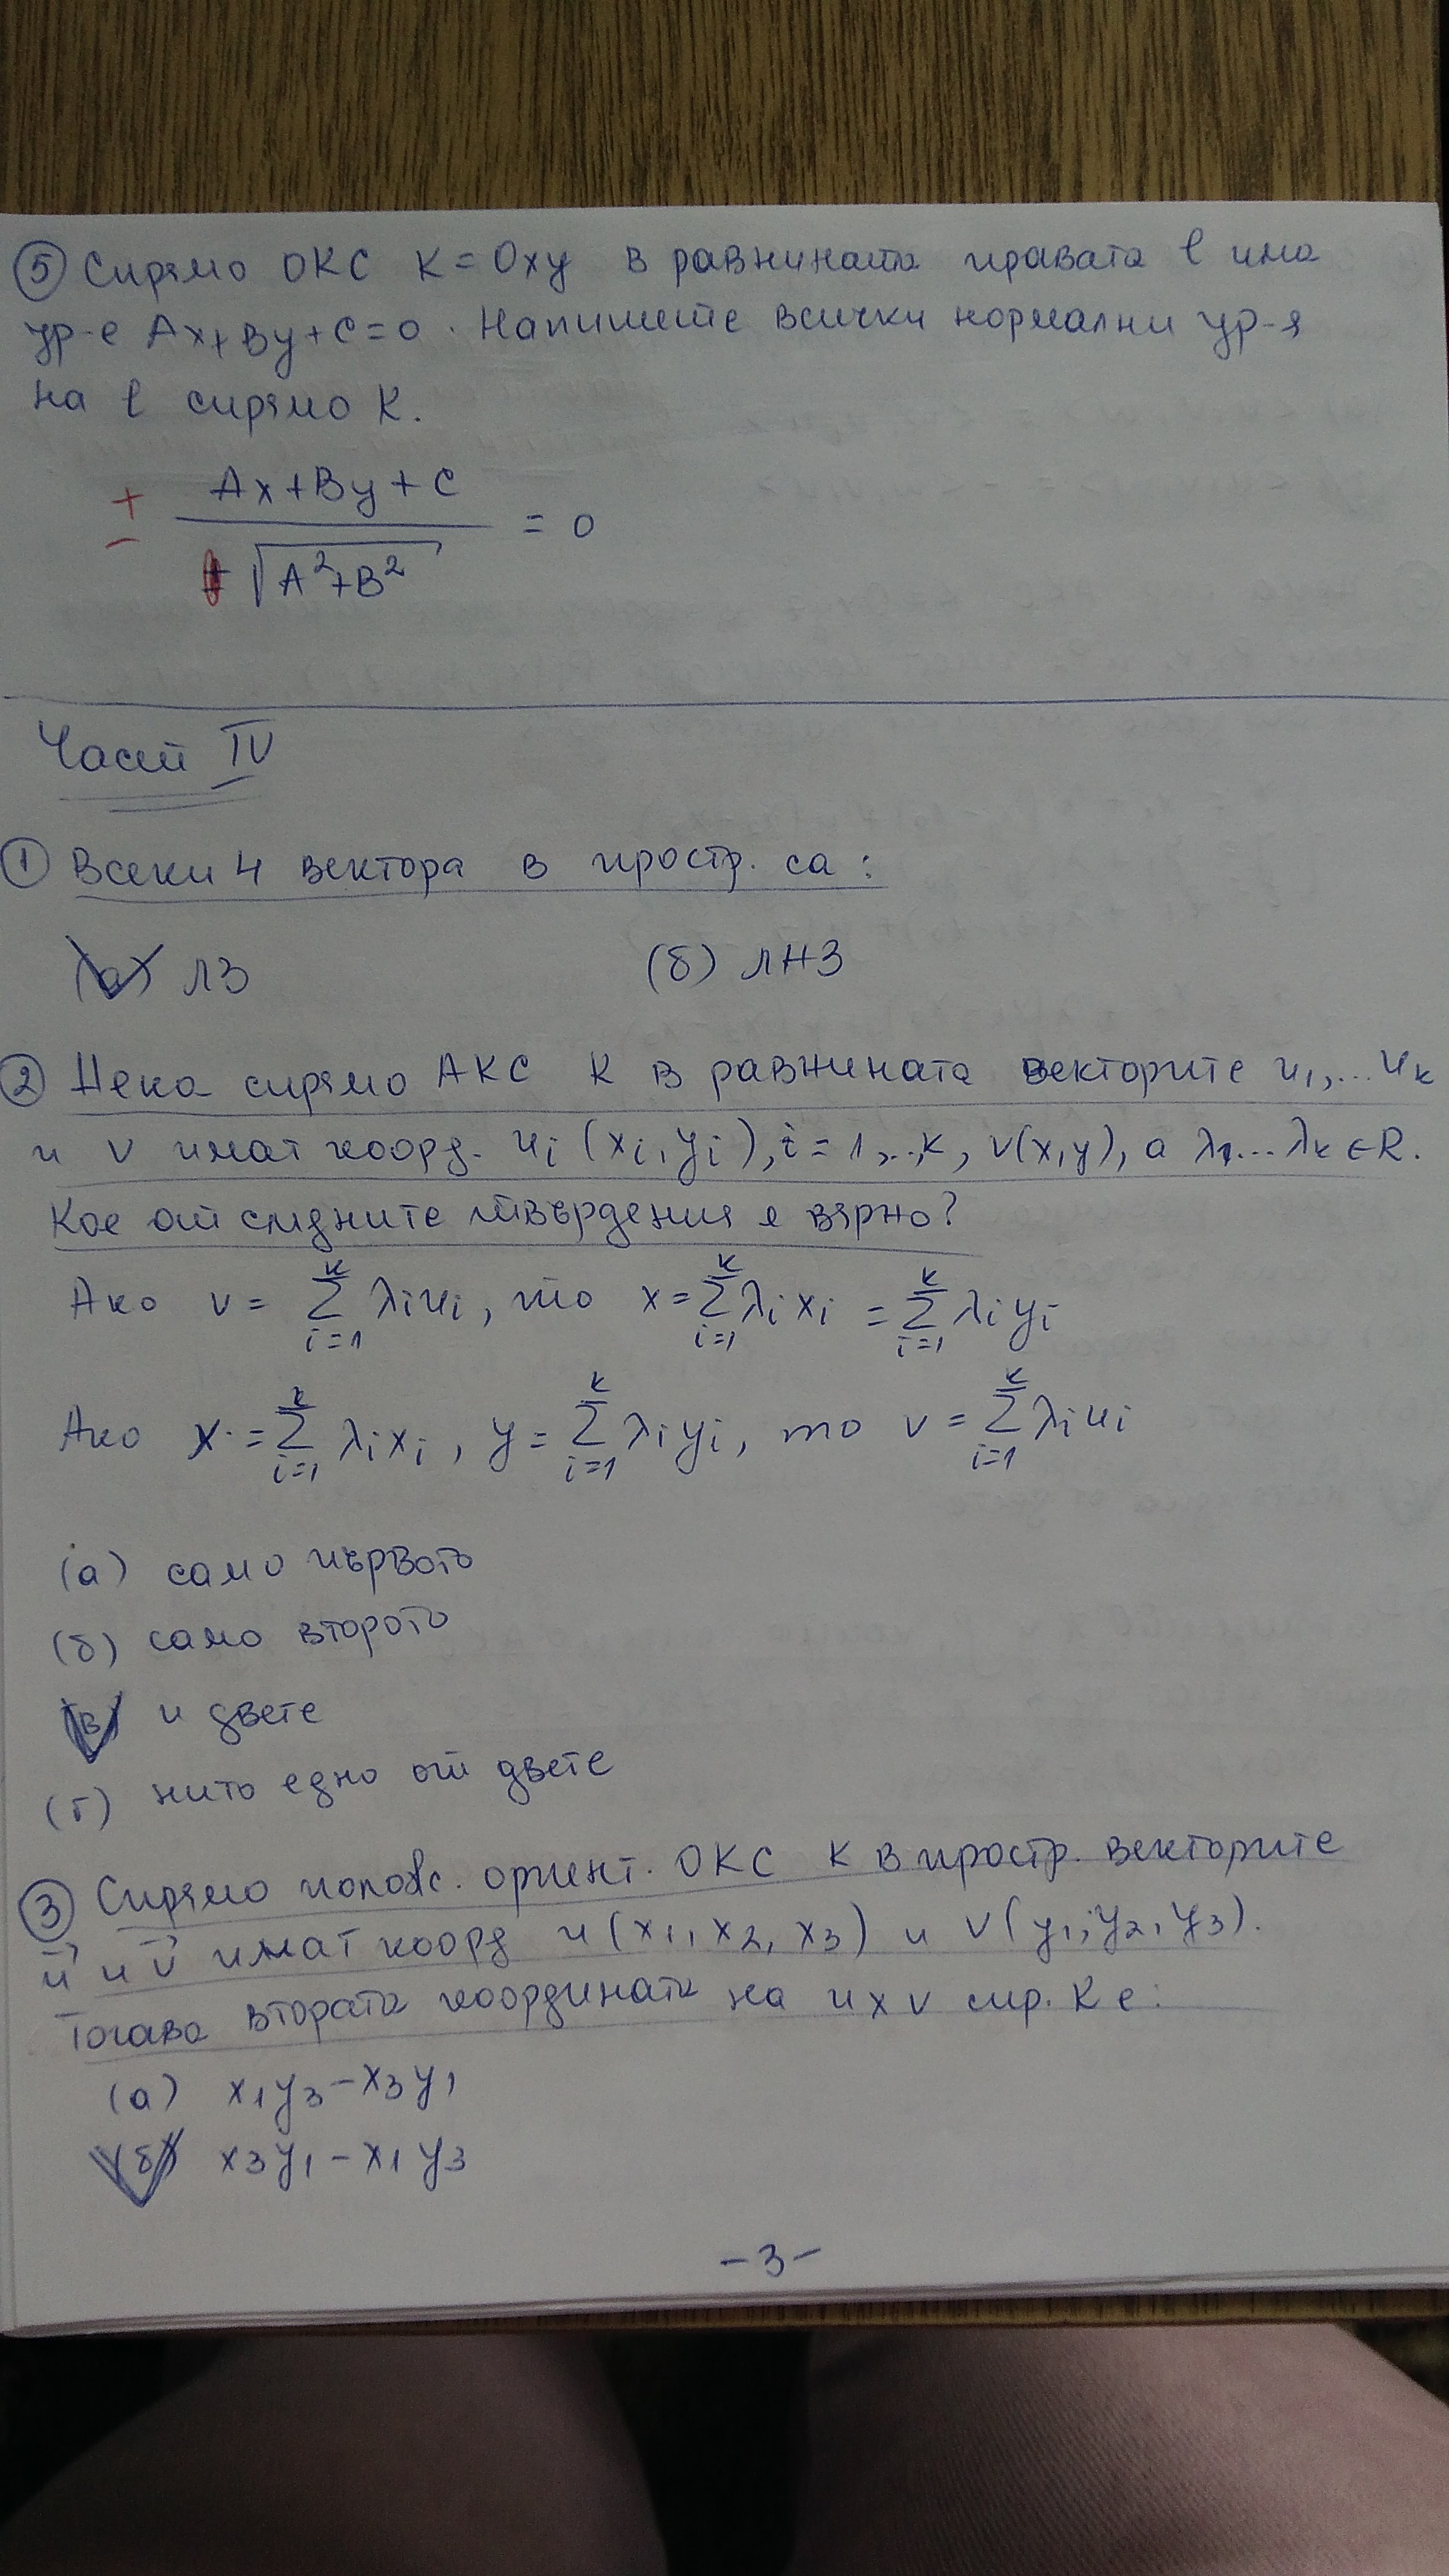 ⑤ Спрямо ОКС K = Oxy в равнината правата l има
ур-е Ax+By+C=0. Напишете всички нормални ур-я
на l спрямо K.
± (Ax+By+C) / √(A²+B²) = 0
Част IV
① Всеки 4 вектора в простр. са:
(а) ЛЗ (б) ЛНЗ
② Нека спрямо АКС K в равнината векторите u₁,...uₖ
и v имат коорд. uᵢ(xᵢ,yᵢ), i=1,..,k, v(x,y), а λ₁...λₖ∈R.
Кое от следните твърдения е вярно?
Ако v = ∑ᵢ₌₁ᵏ λᵢuᵢ, то x = ∑ᵢ₌₁ᵏ λᵢxᵢ = ∑ᵢ₌₁ᵏ λᵢyᵢ
Ако x = ∑ᵢ₌₁ᵏ λᵢxᵢ, y = ∑ᵢ₌₁ᵏ λᵢyᵢ, то v = ∑ᵢ₌₁ᵏ λᵢuᵢ
(а) само първото
(б) само второто
(в) и двете
(г) нито едно от двете
③ Спрямо полож. ориент. ОКС K в простр. векторите
u⃗ и v⃗ имат коорд u(x₁,x₂,x₃) и v(y₁,y₂,y₃).
Тогава втората координата на u×v спр. K е:
(а) x₁y₃−x₃y₁
(б) x₃y₁−x₁y₃
−3−